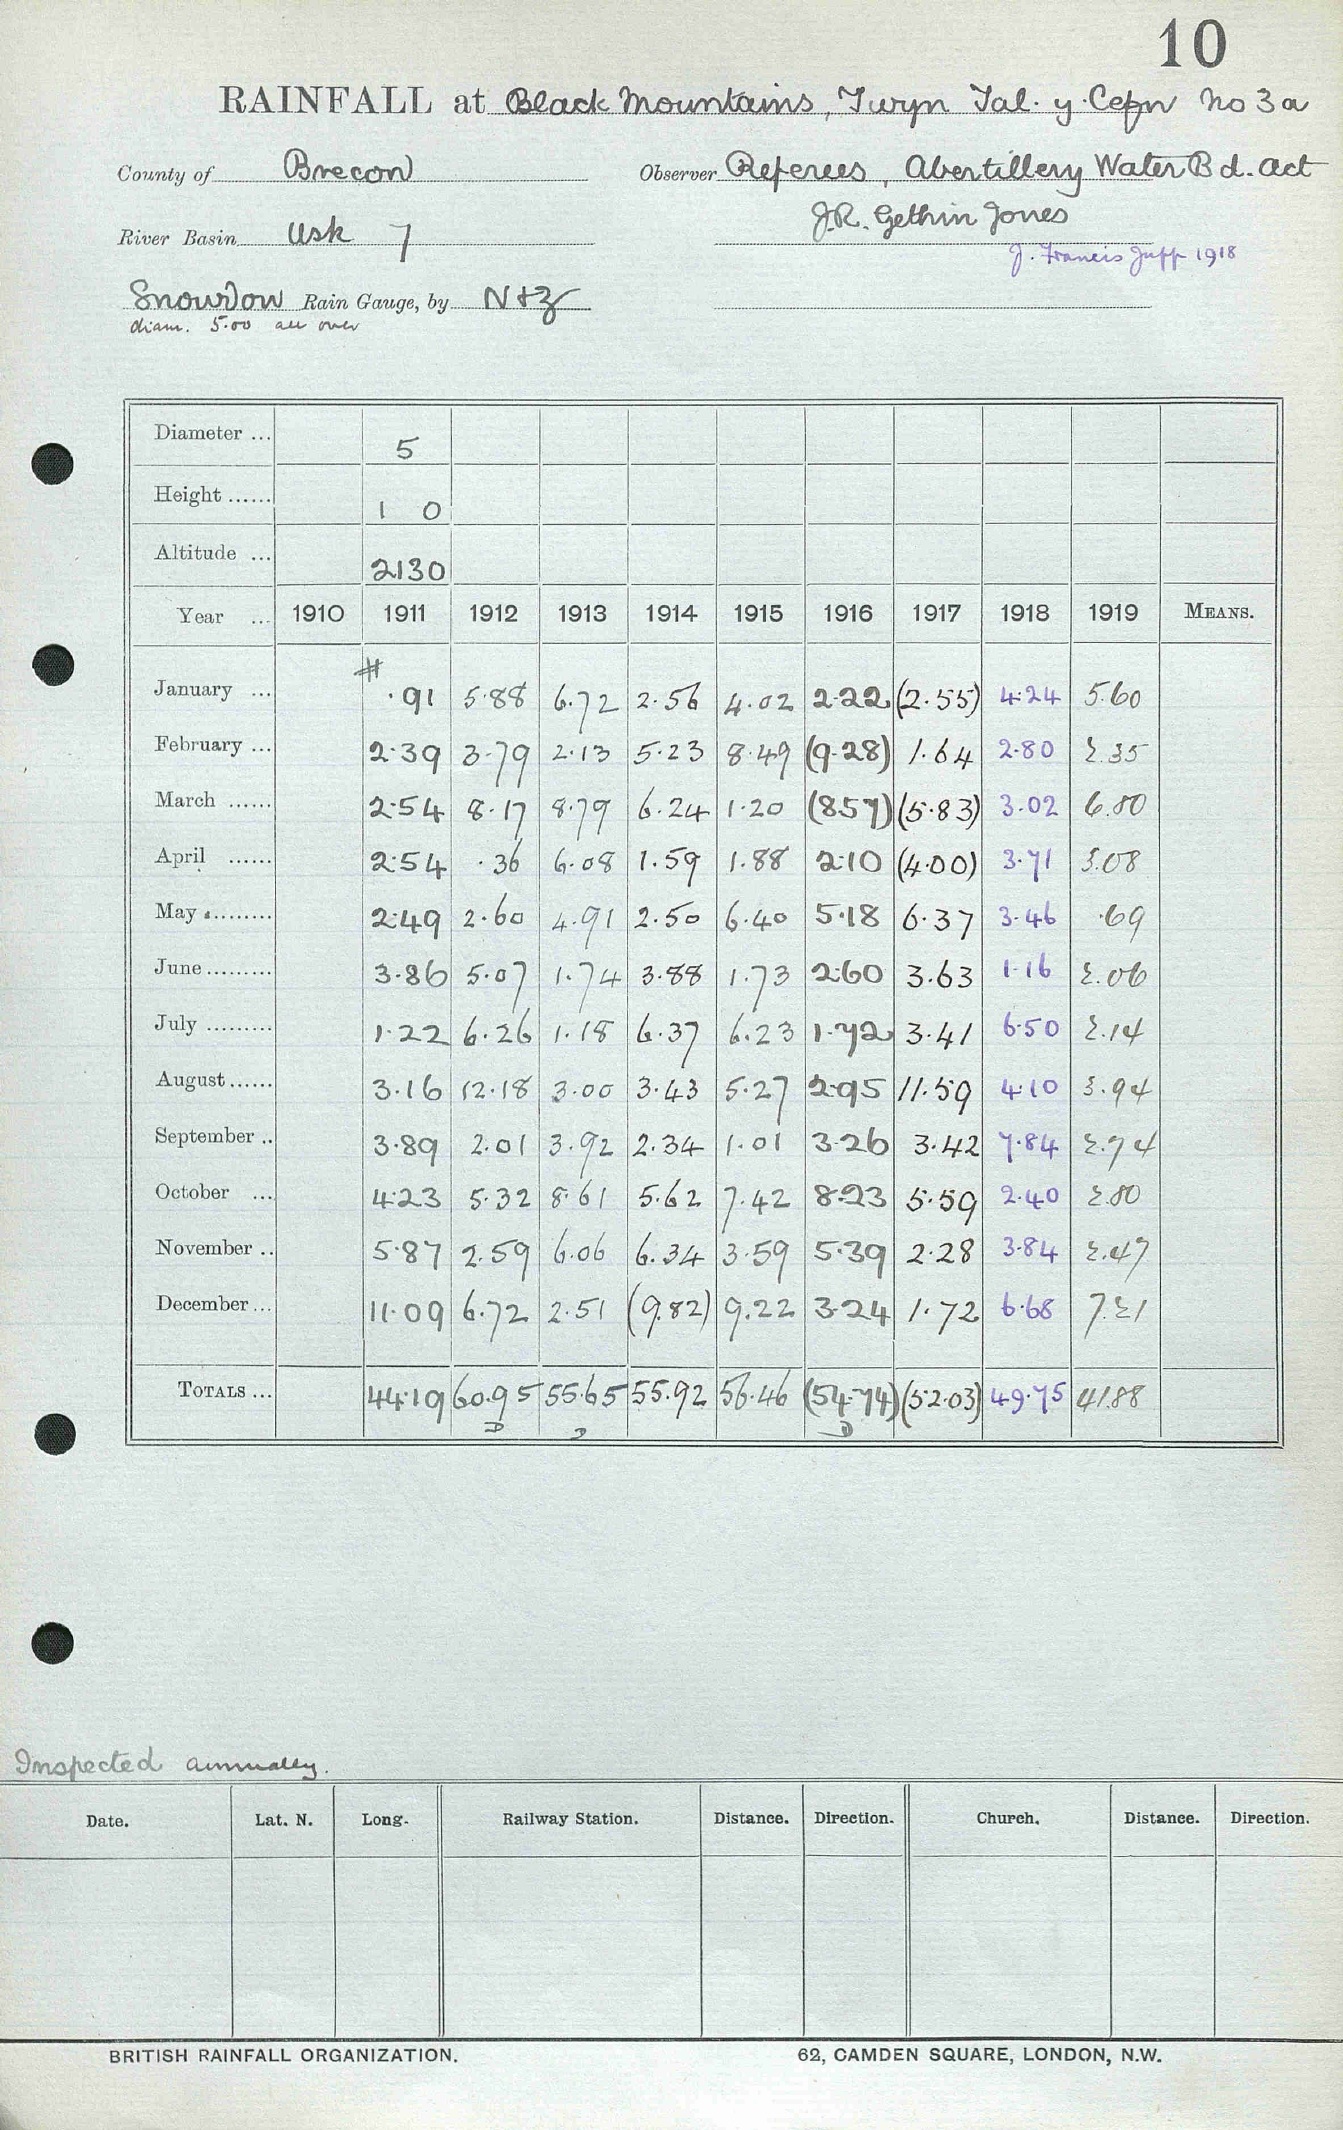 10
RAINFALL at Black Mountains, Twyn Tal-y-Cefn No 3a
County of Brecon Observer Referees, Abertillery Water Bd. Act
J.R. Gethin Jones
River Basin Usk 7
J. Francis Jupp 1918
Snowdon Rain Gauge, by N+Z
diam. 5.00 all over
Diameter ... 5
Height ...... 1 0
Altitude ... 2130
Year ... 1910 1911 1912 1913 1914 1915 1916 1917 1918 1919 MEANS.
#
January ... .91 5.88 6.72 2.56 4.02 2.22 (2.55) 4.24 5.60
February ... 2.39 3.79 2.13 5.23 8.49 (9.28) 1.64 2.80 2.35
March ...... 2.54 8.17 8.79 6.24 1.20 (8.57) (5.83) 3.02 6.80
April ...... 2.54 .36 6.08 1.59 1.88 2.10 (4.00) 3.71 3.08
May ......... 2.49 2.60 4.91 2.50 6.40 5.18 6.37 3.46 .69
June ......... 3.86 5.07 1.74 3.88 1.73 2.60 3.63 1.16 2.06
July ......... 1.22 6.26 1.18 6.37 6.23 1.72 3.41 6.50 2.14
August ...... 3.16 12.18 3.00 3.43 5.27 2.95 11.59 4.10 3.94
September .. 3.89 2.01 3.92 2.34 1.01 3.26 3.42 7.84 2.74
October ... 4.23 5.32 8.61 5.62 7.42 8.23 5.59 2.40 2.80
November .. 5.87 2.59 6.06 6.34 3.59 5.39 2.28 3.84 2.47
December ... 11.09 6.72 2.51 (9.82) 9.22 3.24 1.72 6.68 7.21
TOTALS ... 44.19 60.95 55.65 55.92 56.46 (54.74) (52.03) 49.75 41.88
D D D
Inspected annually.
Date. Lat. N. Long. Railway Station. Distance. Direction. Church. Distance. Direction.
BRITISH RAINFALL ORGANIZATION. 62, CAMDEN SQUARE, LONDON, N.W.